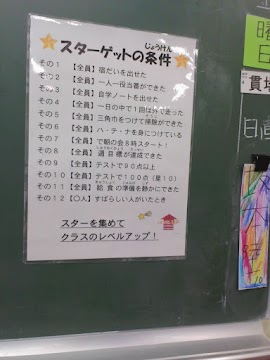 じょうけん
スターゲットの条件
その1 【全員】宿だいを出せた
その2 【全員】一人一役当番ができた
その3 【全員】自学ノートを出せた
その4 【全員】一日の中で1回は外で走った
その5 【全員】三角巾をつけて掃除ができた
その6 【全員】ハ・テ・ナを身につけている
その7 【全員】で朝の会8時スタート!
その8 【全員】週目標が達成できた
その9 【全員】テストで90点以上
その10 【全員】テストで100点(星10)
その11 【全員】給食の準備を静かにできた
その12 【○人】すばらしい人がいたとき
スターを集めて
クラスのレベルアップ!
曜
日
日直